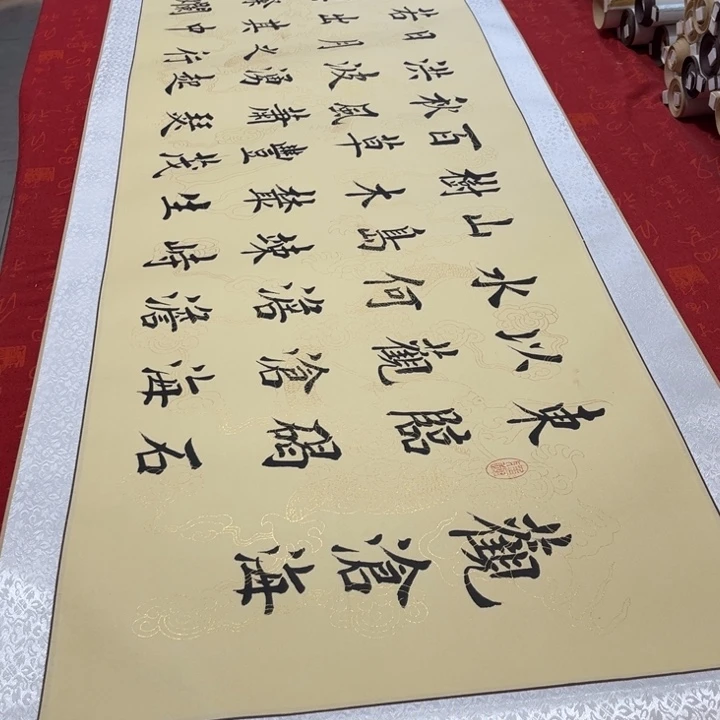 觀滄海
東臨碣石
以觀滄海
水何澹澹
山島竦峙
樹木叢生
百草豐茂
秋風蕭瑟
洪波湧起
日月之行
若出其中
爛